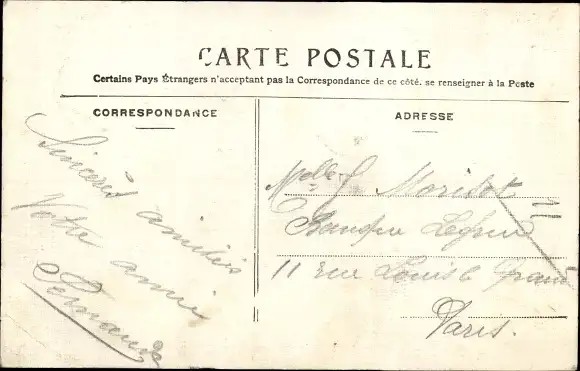 CARTE POSTALE
Certains Pays Étrangers n'acceptent pas la Correspondance de ce côté. se renseigner à la Poste
CORRESPONDANCE
Sincères amitiés
Votre amie
ADRESSE
Melle J. Morisot
11 rue Louis le Grand
Paris.